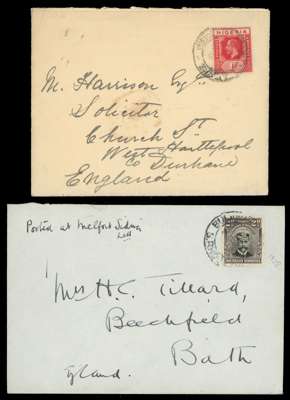 NIGERIA
M. Harrison Esq.
Solicitor
Church St
West Hartlepool
Co Durham
England
Posted at Melfort Siding
Mrs H.C. Tillard,
Beechfield
Bath
England.